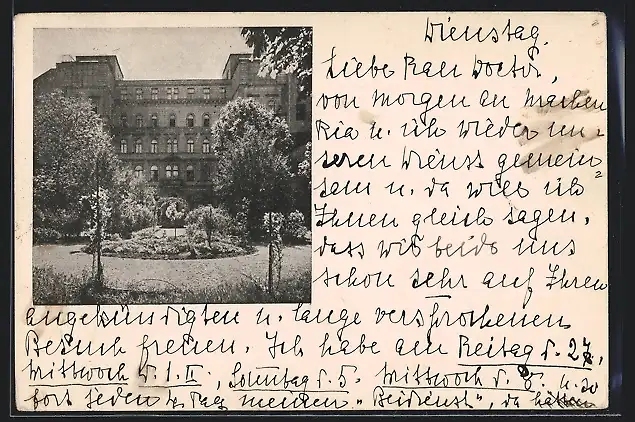 Dienstag.
Liebe Frau Doctor,
von morgen an machen
Ria u. ich wieder un-
seren Dienst gemein=
sam u. da will ich
Ihnen gleich sagen,
dass wir beide uns
schon sehr auf Ihren
angekündigten u. lange versprochenen
Besuch freuen. Ich habe am Freitag d. 27.,
Mittwoch d. 1. II., Sonntag d. 5. Mittwoch d. 8. u. so
fort jeden 4. Tag meinen "Beidienst", da hätten